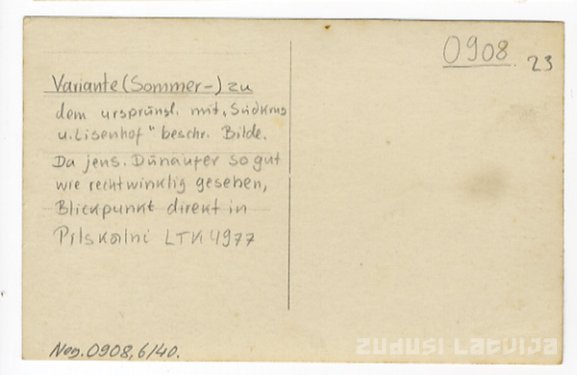 0908
23
Variante (Sommer-) zu
dem ursprüngl. mit „Südkrus
u. Lisenhof" beschr. Bilde.
Da jens. Dünaufer so gut
wie rechtwinklig gesehen,
Blickpunkt direkt in
Pilskalni LTK 4977
Neg. 0908, 6/40.
ZUDUSI LATVIJA